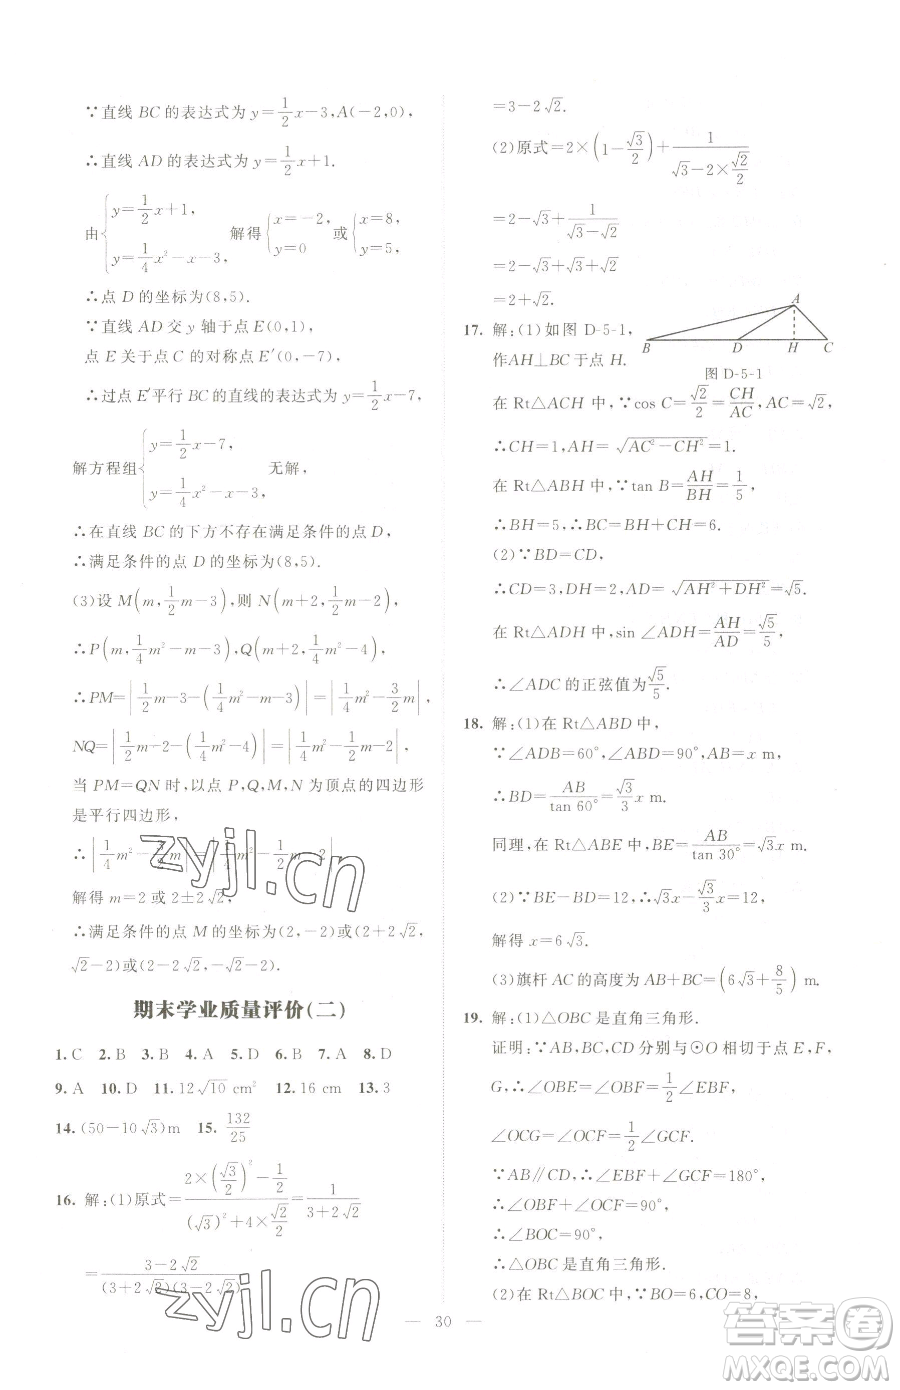 ∵直线 BC 的表达式为 y=1/2x-3,A(-2,0),
∴直线 AD 的表达式为 y=1/2x+1.
由{y=1/2x+1, y=1/4x²-x-3, 解得{x=-2, y=0 或{x=8, y=5,
∴点 D 的坐标为(8,5).
∵直线 AD 交 y 轴于点 E(0,1),
点 E 关于点 C 的对称点 E′(0,-7),
∴过点 E′平行 BC 的直线的表达式为 y=1/2x-7,
解方程组{y=1/2x-7, y=1/4x²-x-3, 无解,
∴在直线 BC 的下方不存在满足条件的点 D,
∴满足条件的点 D 的坐标为(8,5).
(3)设 M(m,1/2m-3),则 N(m+2,1/2m-2),
∴P(m,1/4m²-m-3),Q(m+2,1/4m²-4),
∴PM=|1/2m-3-(1/4m²-m-3)|=|1/4m²-3/2m|,
NQ=|1/2m-2-(1/4m²-4)|=|1/4m²-1/2m-2|,
当 PM=QN 时,以点 P,Q,M,N 为顶点的四边形
是平行四边形,
解得 m=2 或 2±2√2,
∴满足条件的点 M 的坐标为(2,-2)或(2+2√2,
√2-2)或(2-2√2,-√2-2).
期末学业质量评价(二)
1.C 2.B 3.B 4.A 5.D 6.B 7.A 8.D
9.A 10.D 11.12√10 cm² 12.16 cm 13.3
14.(50-10√3)m 15.132/25
16.解:(1)原式=(2×(√3/2)²-1/2)/((√3)²+4×√2/2)=1/(3+2√2)
=(3-2√2)/((3+2√2)(3-2√2))
zyjl.cn
zyjl.cn
30
=3-2√2.
(2)原式=2×(1-√3/2)+1/(√3-2×√2/2)
=2-√3+1/(√3-√2)
=2-√3+√3+√2
=2+√2.
17.解:(1)如图 D-5-1,
作AH⊥BC 于点 H.
A
B D H C
图 D-5-1
在 Rt△ACH 中,∵cos C=√2/2=CH/AC,AC=√2,
∴CH=1,AH=√(AC²-CH²)=1.
在 Rt△ABH 中,∵tan B=AH/BH=1/5,
∴BH=5,∴BC=BH+CH=6.
(2)∵BD=CD,
∴CD=3,DH=2,AD=√(AH²+DH²)=√5.
在 Rt△ADH 中,sin ∠ADH=AH/AD=√5/5,
∴∠ADC 的正弦值为√5/5.
18.解:(1)在 Rt△ABD 中,
∵∠ADB=60°,∠ABD=90°,AB=x m,
∴BD=AB/tan 60°=√3/3x m.
同理,在 Rt△ABE 中,BE=AB/tan 30°=√3x m.
(2)∵BE-BD=12,∴√3x-√3/3x=12,
解得 x=6√3.
(3)旗杆 AC 的高度为 AB+BC=(6√3+8/5) m.
19.解:(1)△OBC 是直角三角形.
证明:∵AB,BC,CD 分别与⊙O 相切于点 E,F,
G,∴∠OBE=∠OBF=1/2∠EBF,
∠OCG=∠OCF=1/2∠GCF.
∵AB∥CD,∴∠EBF+∠GCF=180°,
∴∠OBF+∠OCF=90°,
∴∠BOC=90°,
∴△OBC 是直角三角形.
(2)在 Rt△BOC 中,∵BO=6,CO=8,
答案圈
MXQE.COM